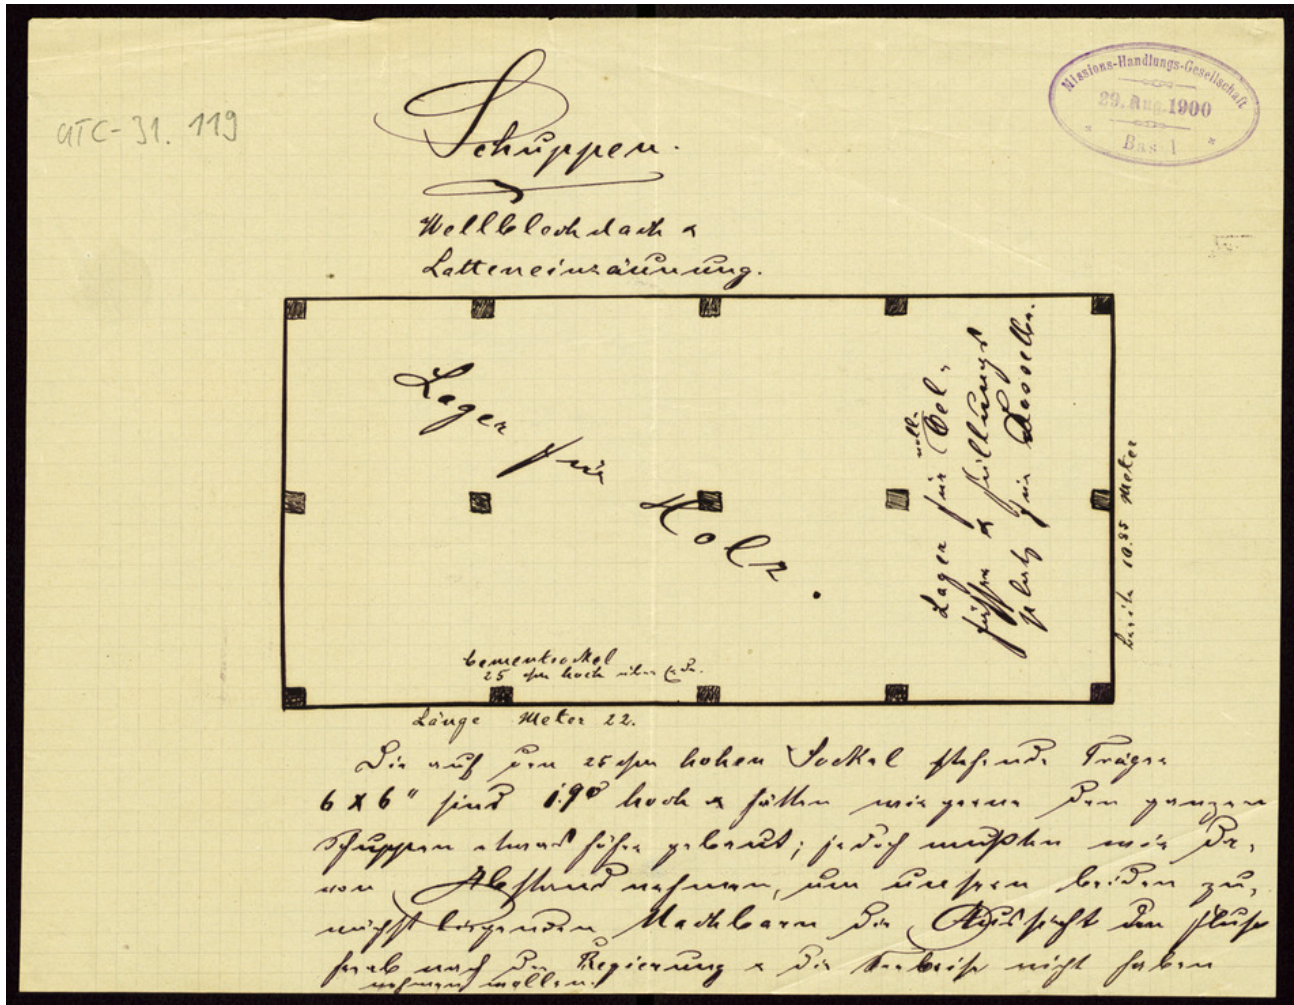 UTC-31.119
Missions-Handlungs-Gesellschaft
29. Aug. 1900
Basel
Schuppen.
Wellblechdach &
Latteneinzäunung.
Lager für Holz.
Lager für Oel-
fässer & Füllungs
platz für dieselben.
breite 10.95 Meter
Cementsockel
25 cm hoch über Erde.
Länge Meter 22.
Die auf den 25 cm hohen Sockel stehende Träger
6 x 6" sind hoch & hätten wir gerne den ganzen
Schuppen etwas höher gebaut; jedoch mußten wir da-
von Abstand nehmen, um unsern beiden zu-
nächst liegenden Nachbarn die Aussicht den Fluss
herab nach der Regierung & die nicht haben
nehmen wollen.